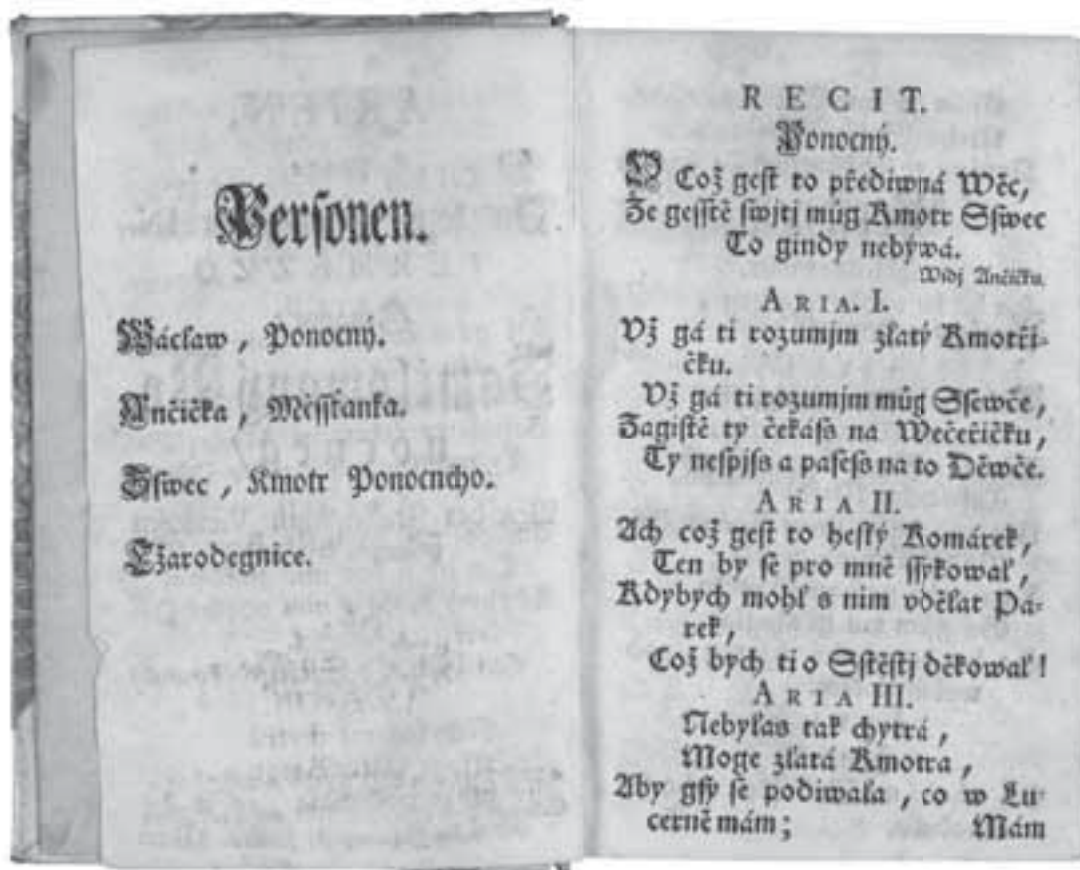 Personen.
Wáclaw, Ponocný.
Ančička, Měsstanka.
Sswec, Kmotr Ponocncho.
Cžarodegnice.
RECIT.
Ponocný.
Což gest to předivná Wěc,
Že gesstě swjtj můg Kmotr Sswec
To gindy nebýwá.
Widj Ančičku.
ARIA. I.
Vž gá ti rozumjm zlatý Kmotři-
čku.
Vž gá ti rozumjm můg Ssewče,
Zagistě ty čekáss na Wečeřičku,
Ty nespjss a pasess na to Děwče.
ARIA II.
Ach což gest to heský Komárek,
Ten by se pro mně ssykowal,
Kdybych mohl s nim vdělat Pá-
rek,
Což bych ti o Sstěstj děkowal!
ARIA III.
Nebylas tak chytrá,
Moge zlatá Kmotra,
Aby gsy se podiwala, co w Lu-
cerně mám; Mám